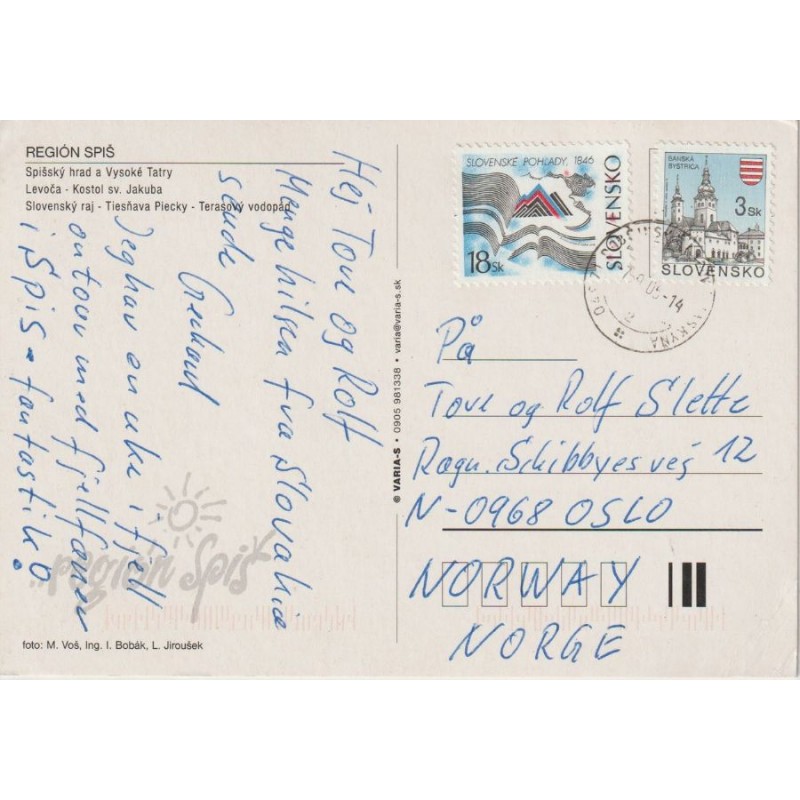 REGIÓN SPIŠ
Spišský hrad a Vysoké Tatry
Levoča - Kostol sv. Jakuba
Slovenský raj - Tiesňava Piecky - Terasový vodopád
Hej Tove og Rolf
Mange hilsen fra Slovakia
sende Gerhard
Jeg har en uke i fjell
og tour med fjellfarer
i Spis = fantastik!
...región Spiš
foto: M. Voš, Ing. I. Bobák, L. Jiroušek
© VARIA-S • 0905 981338 • varia@varia-s.sk
SLOVENSKÉ POHĽADY, 1846
SLOVENSKO
18 Sk
BANSKÁ
BYSTRICA
3 Sk
SLOVENSKO
05-14
2
På
Tove og Rolf Slette
Ragn. Schibbyes vej 12
N-0968 OSLO
NORWAY
NORGE